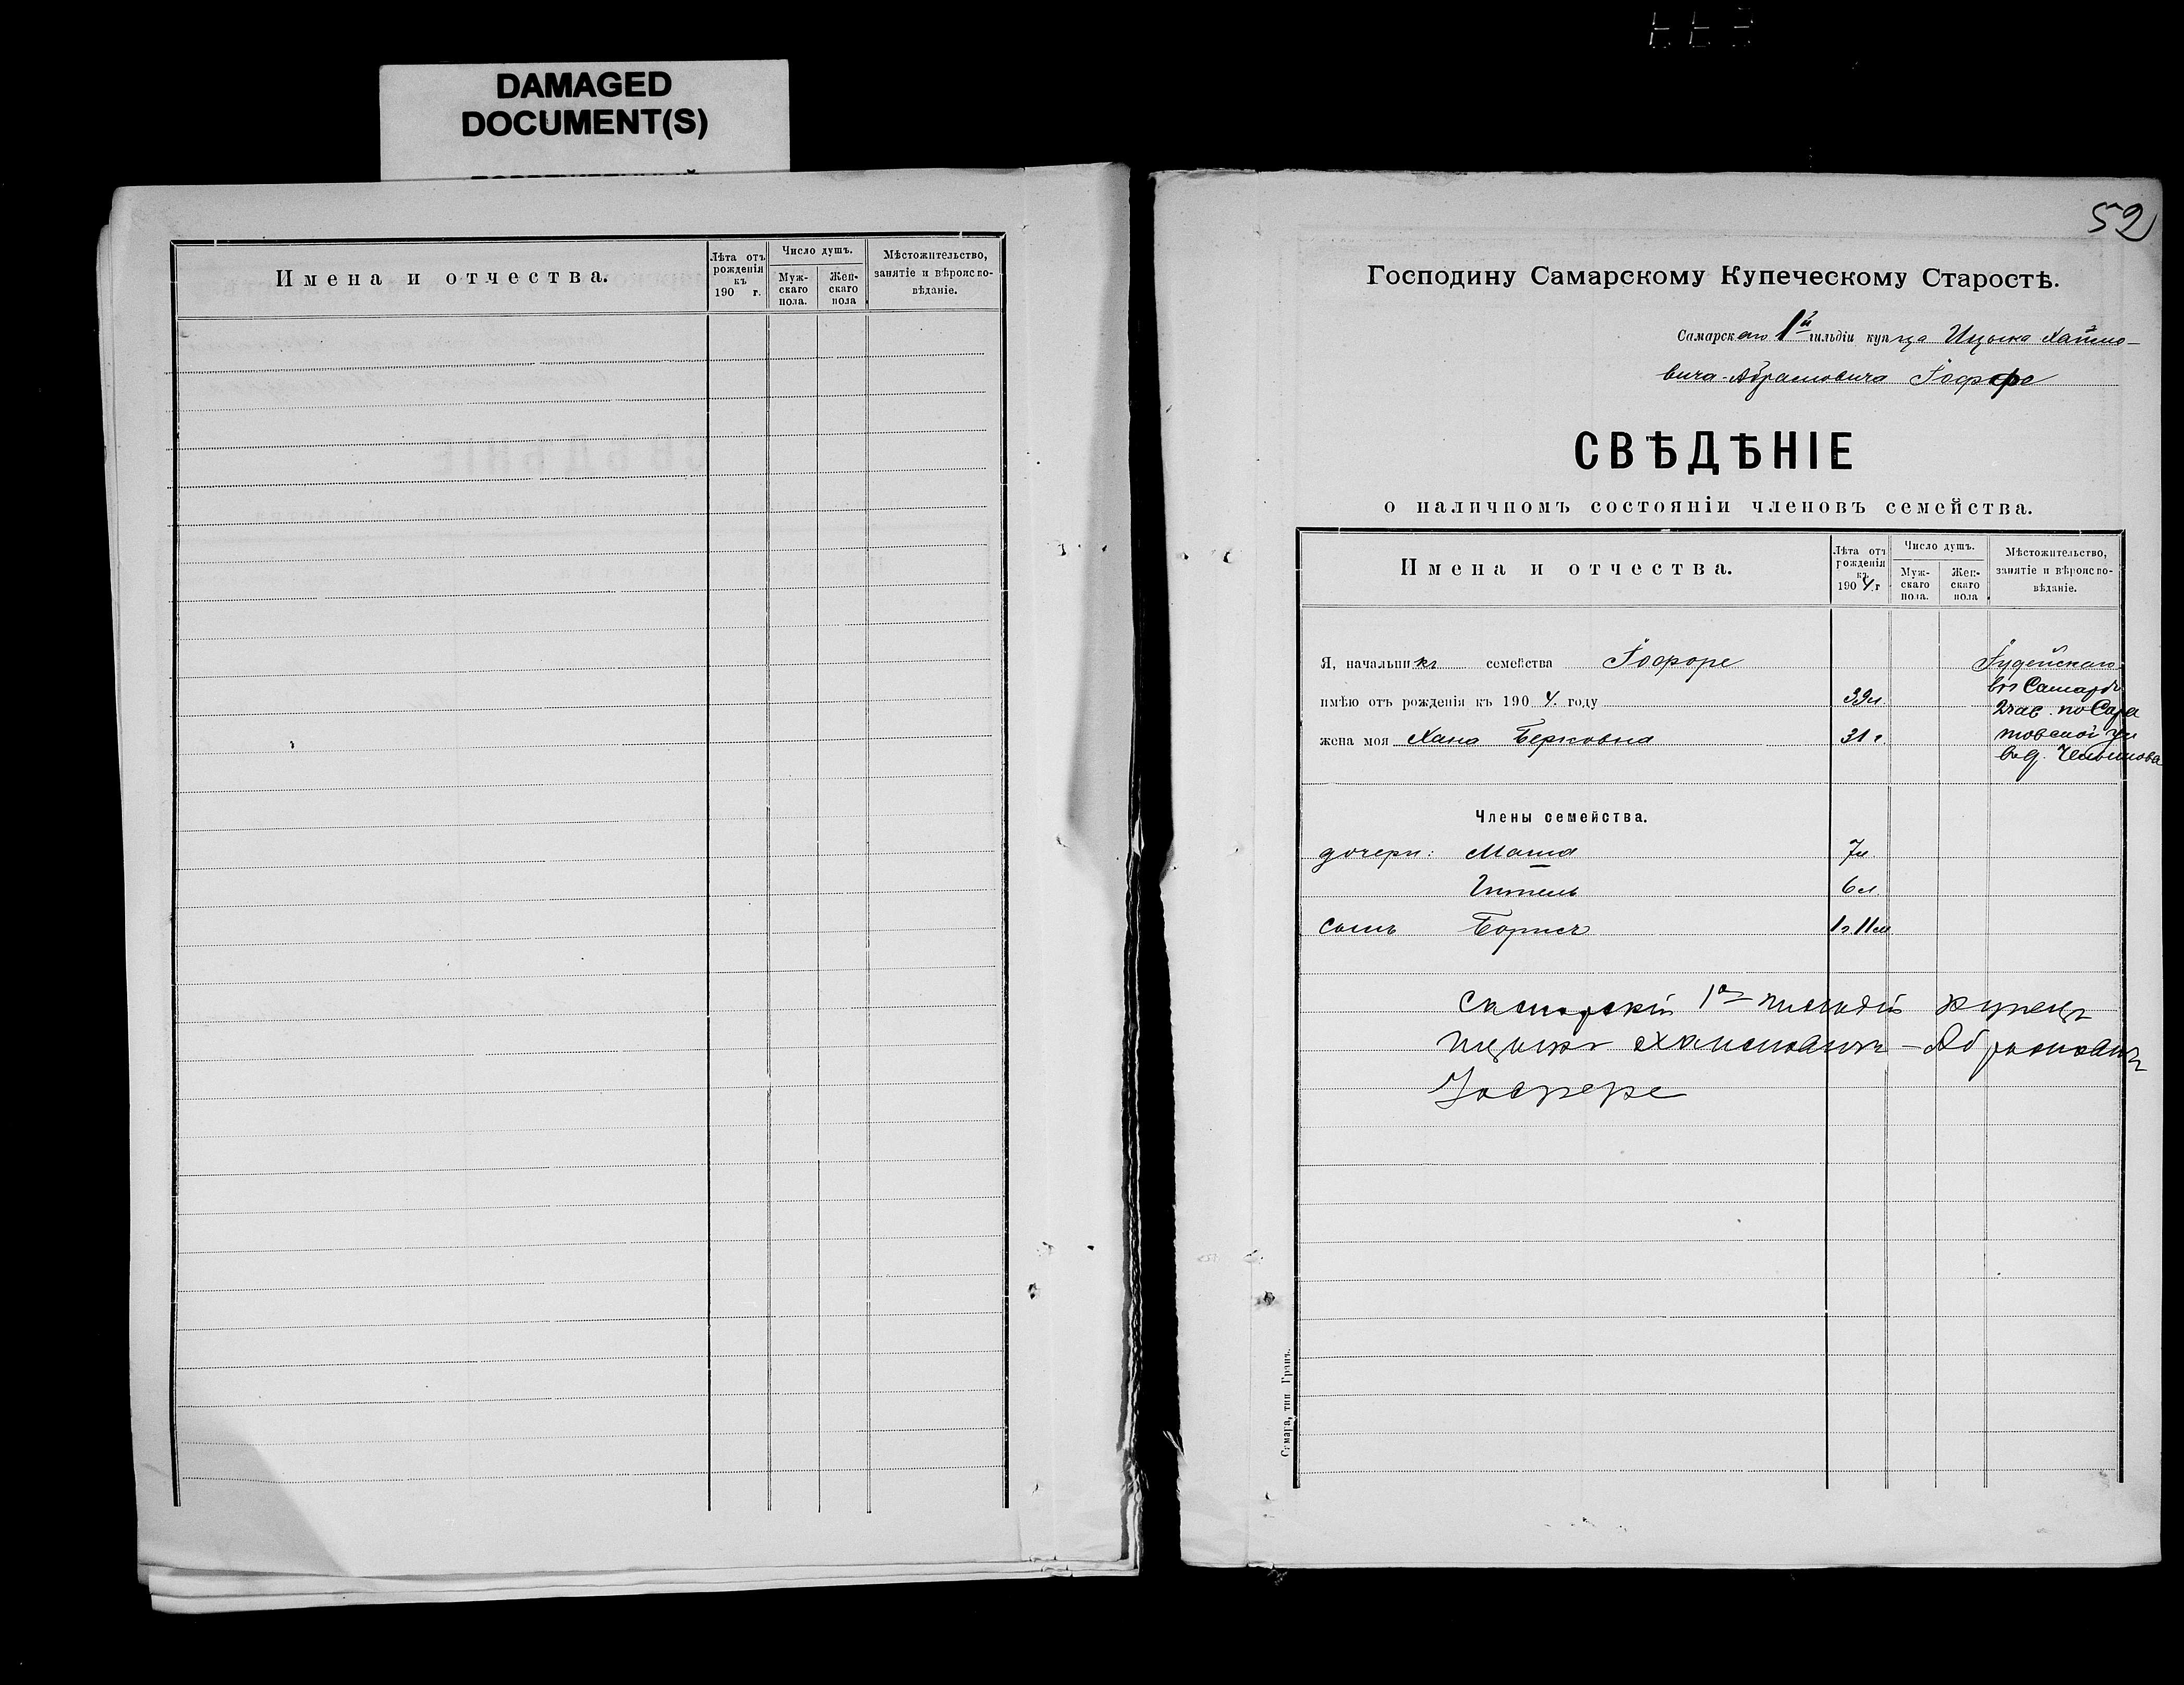 DAMAGED
DOCUMENT(S)
Имена и отчества.
Лѣта отъ рожденія къ 190 г.
Число душъ.
Мужскаго пола.
Женскаго пола
Мѣстожительство, занятіе и вѣроисповѣданіе.
52
Господину Самарскому Купеческому Старостѣ.
Самарскаго 1й гильдіи купца Ицыка Хаимо-
вича-Абрамовича Іоффе
СВѢДѢНІЕ
о наличномъ состояніи членовъ семейства.
Имена и отчества.
Лѣта отъ рожденія къ 1904 г
Число душъ.
Мужскаго пола.
Женскаго пола
Мѣстожительство, занятіе и вѣроисповѣданіе.
Я, начальникъ семейства Іоффе Іудейскаго
имѣю отъ рожденія къ 1904. году 39л. въ Самарѣ
2 час. по Сара
жена моя Хана Берковна 31 г. товской ул
въ д.
Члены семейства.
дочери: Маша 7л.
Гитель 6л.
сынъ Борисъ 1г. 11м
Самарскій 1й гильдіи купецъ
Ицыкъ Хаимовичъ-Абрамовичъ
Іоффе
Самара, тип. Гранъ.